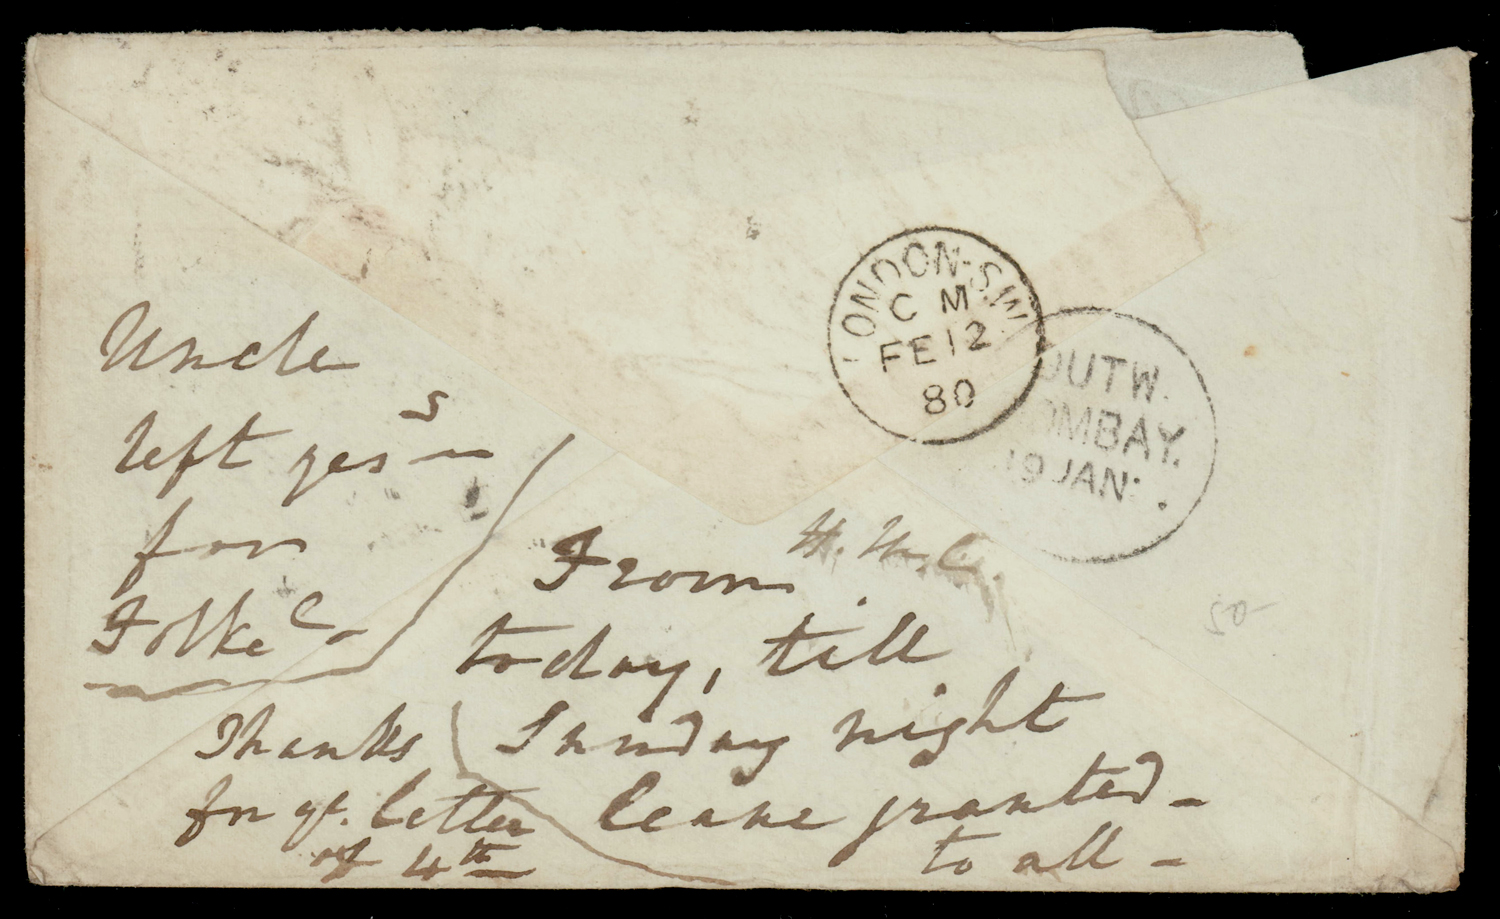 LONDON-S.W.
C M
FE 12
80
OUTW.
OMBAY.
19 JAN:
Uncle
left yes
for
Folke
H. M. C.
From
today, till
Sunday night
leave granted -
to all -
Thanks
for yr. letter
of 4th
50-